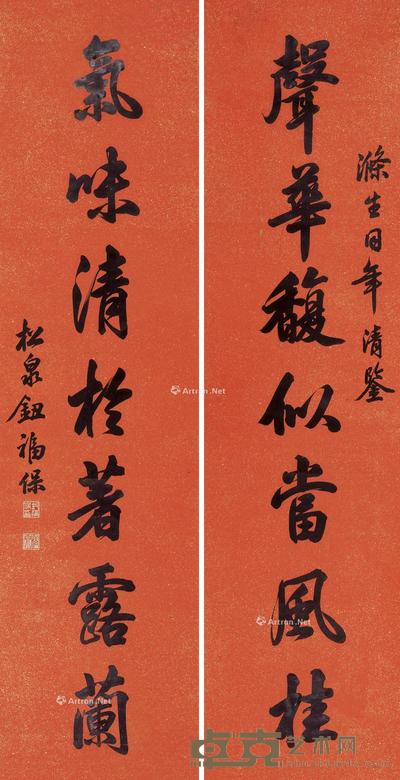 滌生同年清鑒
聲華馥似當風桂
氣味清於著露蘭
松泉鈕福保
Artron.Net
Artron.Net
Artron.Net
Artron.Net
卓克艺术网